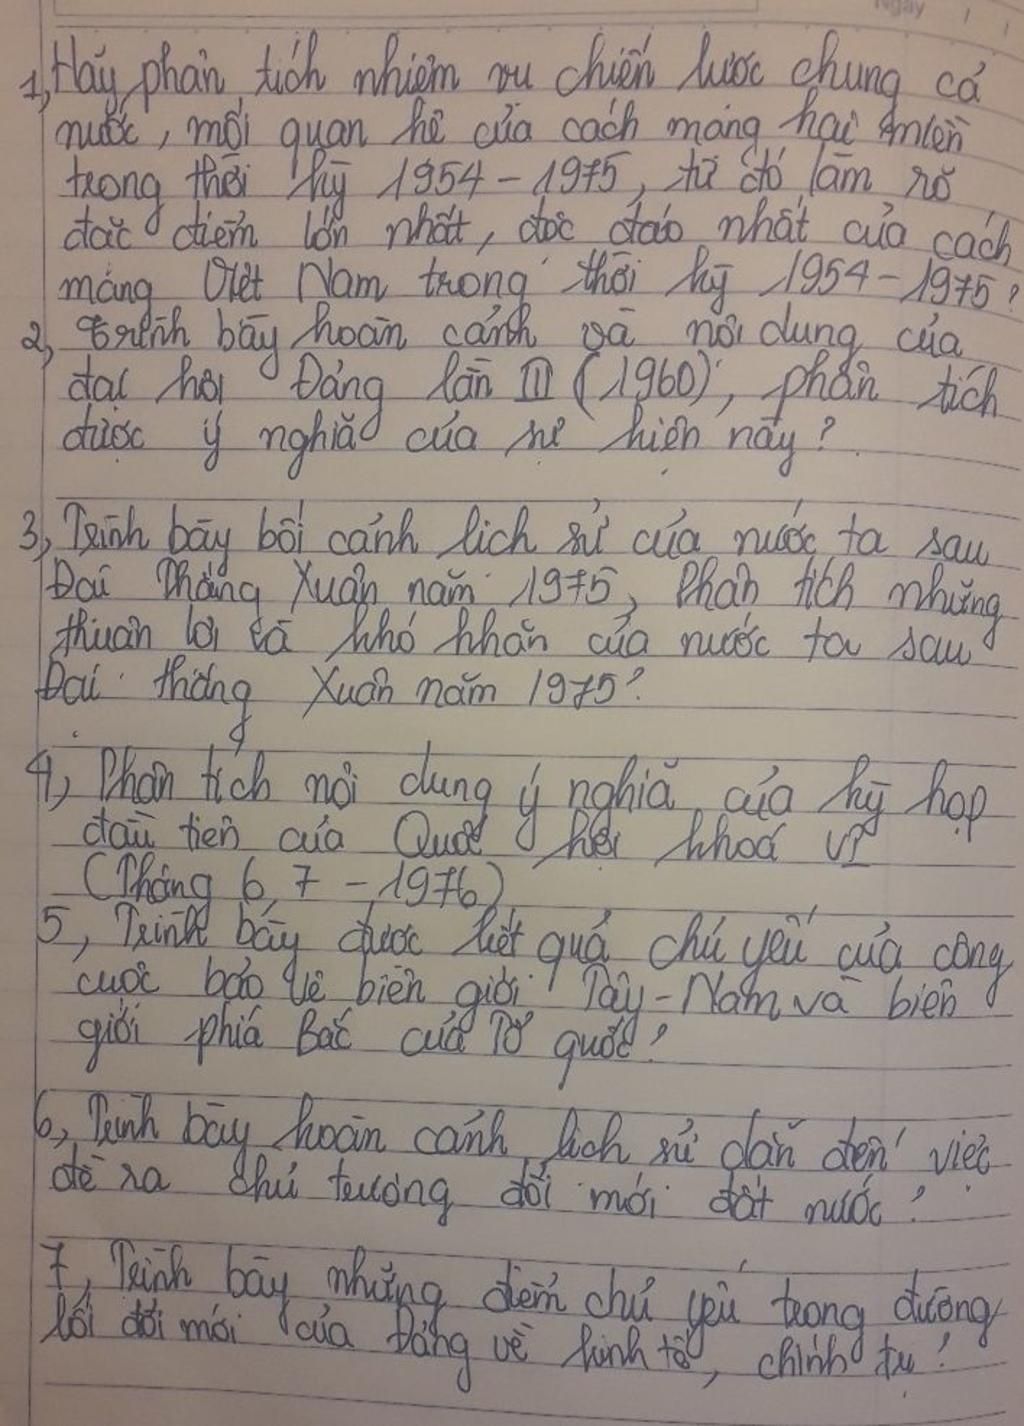 Ngày / /
1, Hãy phân tích nhiệm vụ chiến lược chung cả
nước, mối quan hệ của cách mạng hai miền
trong thời kỳ 1954 - 1975, từ đó làm rõ
đặc điểm lớn nhất, độc đáo nhất của cách
mạng Việt Nam trong thời kỳ 1954 - 1975?
2, Trình bày hoàn cảnh và nội dung của
đại hội Đảng lần III (1960), phân tích
được ý nghĩa của sự kiện này?
3, Trình bày bối cảnh lịch sử của nước ta sau
Đại Thắng Xuân năm 1975, Phân tích những
thuận lợi và khó khăn của nước ta sau
Đại thắng Xuân năm 1975?
4, Phân tích nội dung ý nghĩa của kỳ họp
đầu tiên của Quốc hội khoá VI
(Tháng 6, 7 - 1976)
5, Trình bày được kết quả chủ yếu của công
cuộc bảo vệ biên giới Tây - Nam và biên
giới phía Bắc của Tổ quốc?
6, Trình bày hoàn cảnh lịch sử dẫn đến việc
đề ra chủ trương đổi mới đất nước?
7, Trình bày những điểm chủ yếu trong đường
lối đổi mới của Đảng về kinh tế, chính trị?